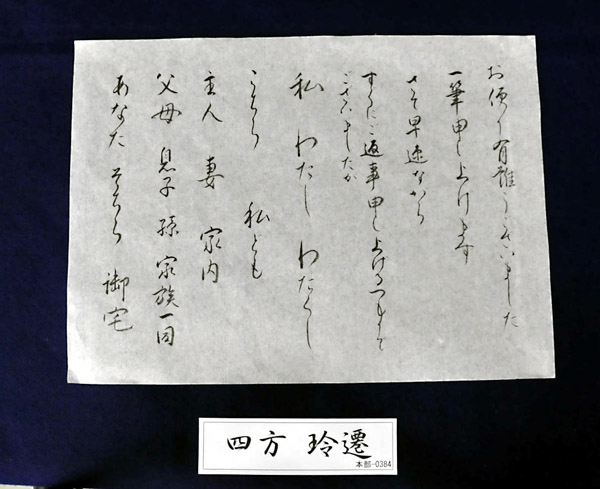 お便り有難うございました
一筆申し上げます
さて早速ながら
すぐにご返事申し上げるつもりで
ございましたが
私 わたし わたくし
こちら 私ども
主人 妻 家内
父母 息子 孫 家族一同
あなた そちら 御宅
四方 玲遷
本部-0384